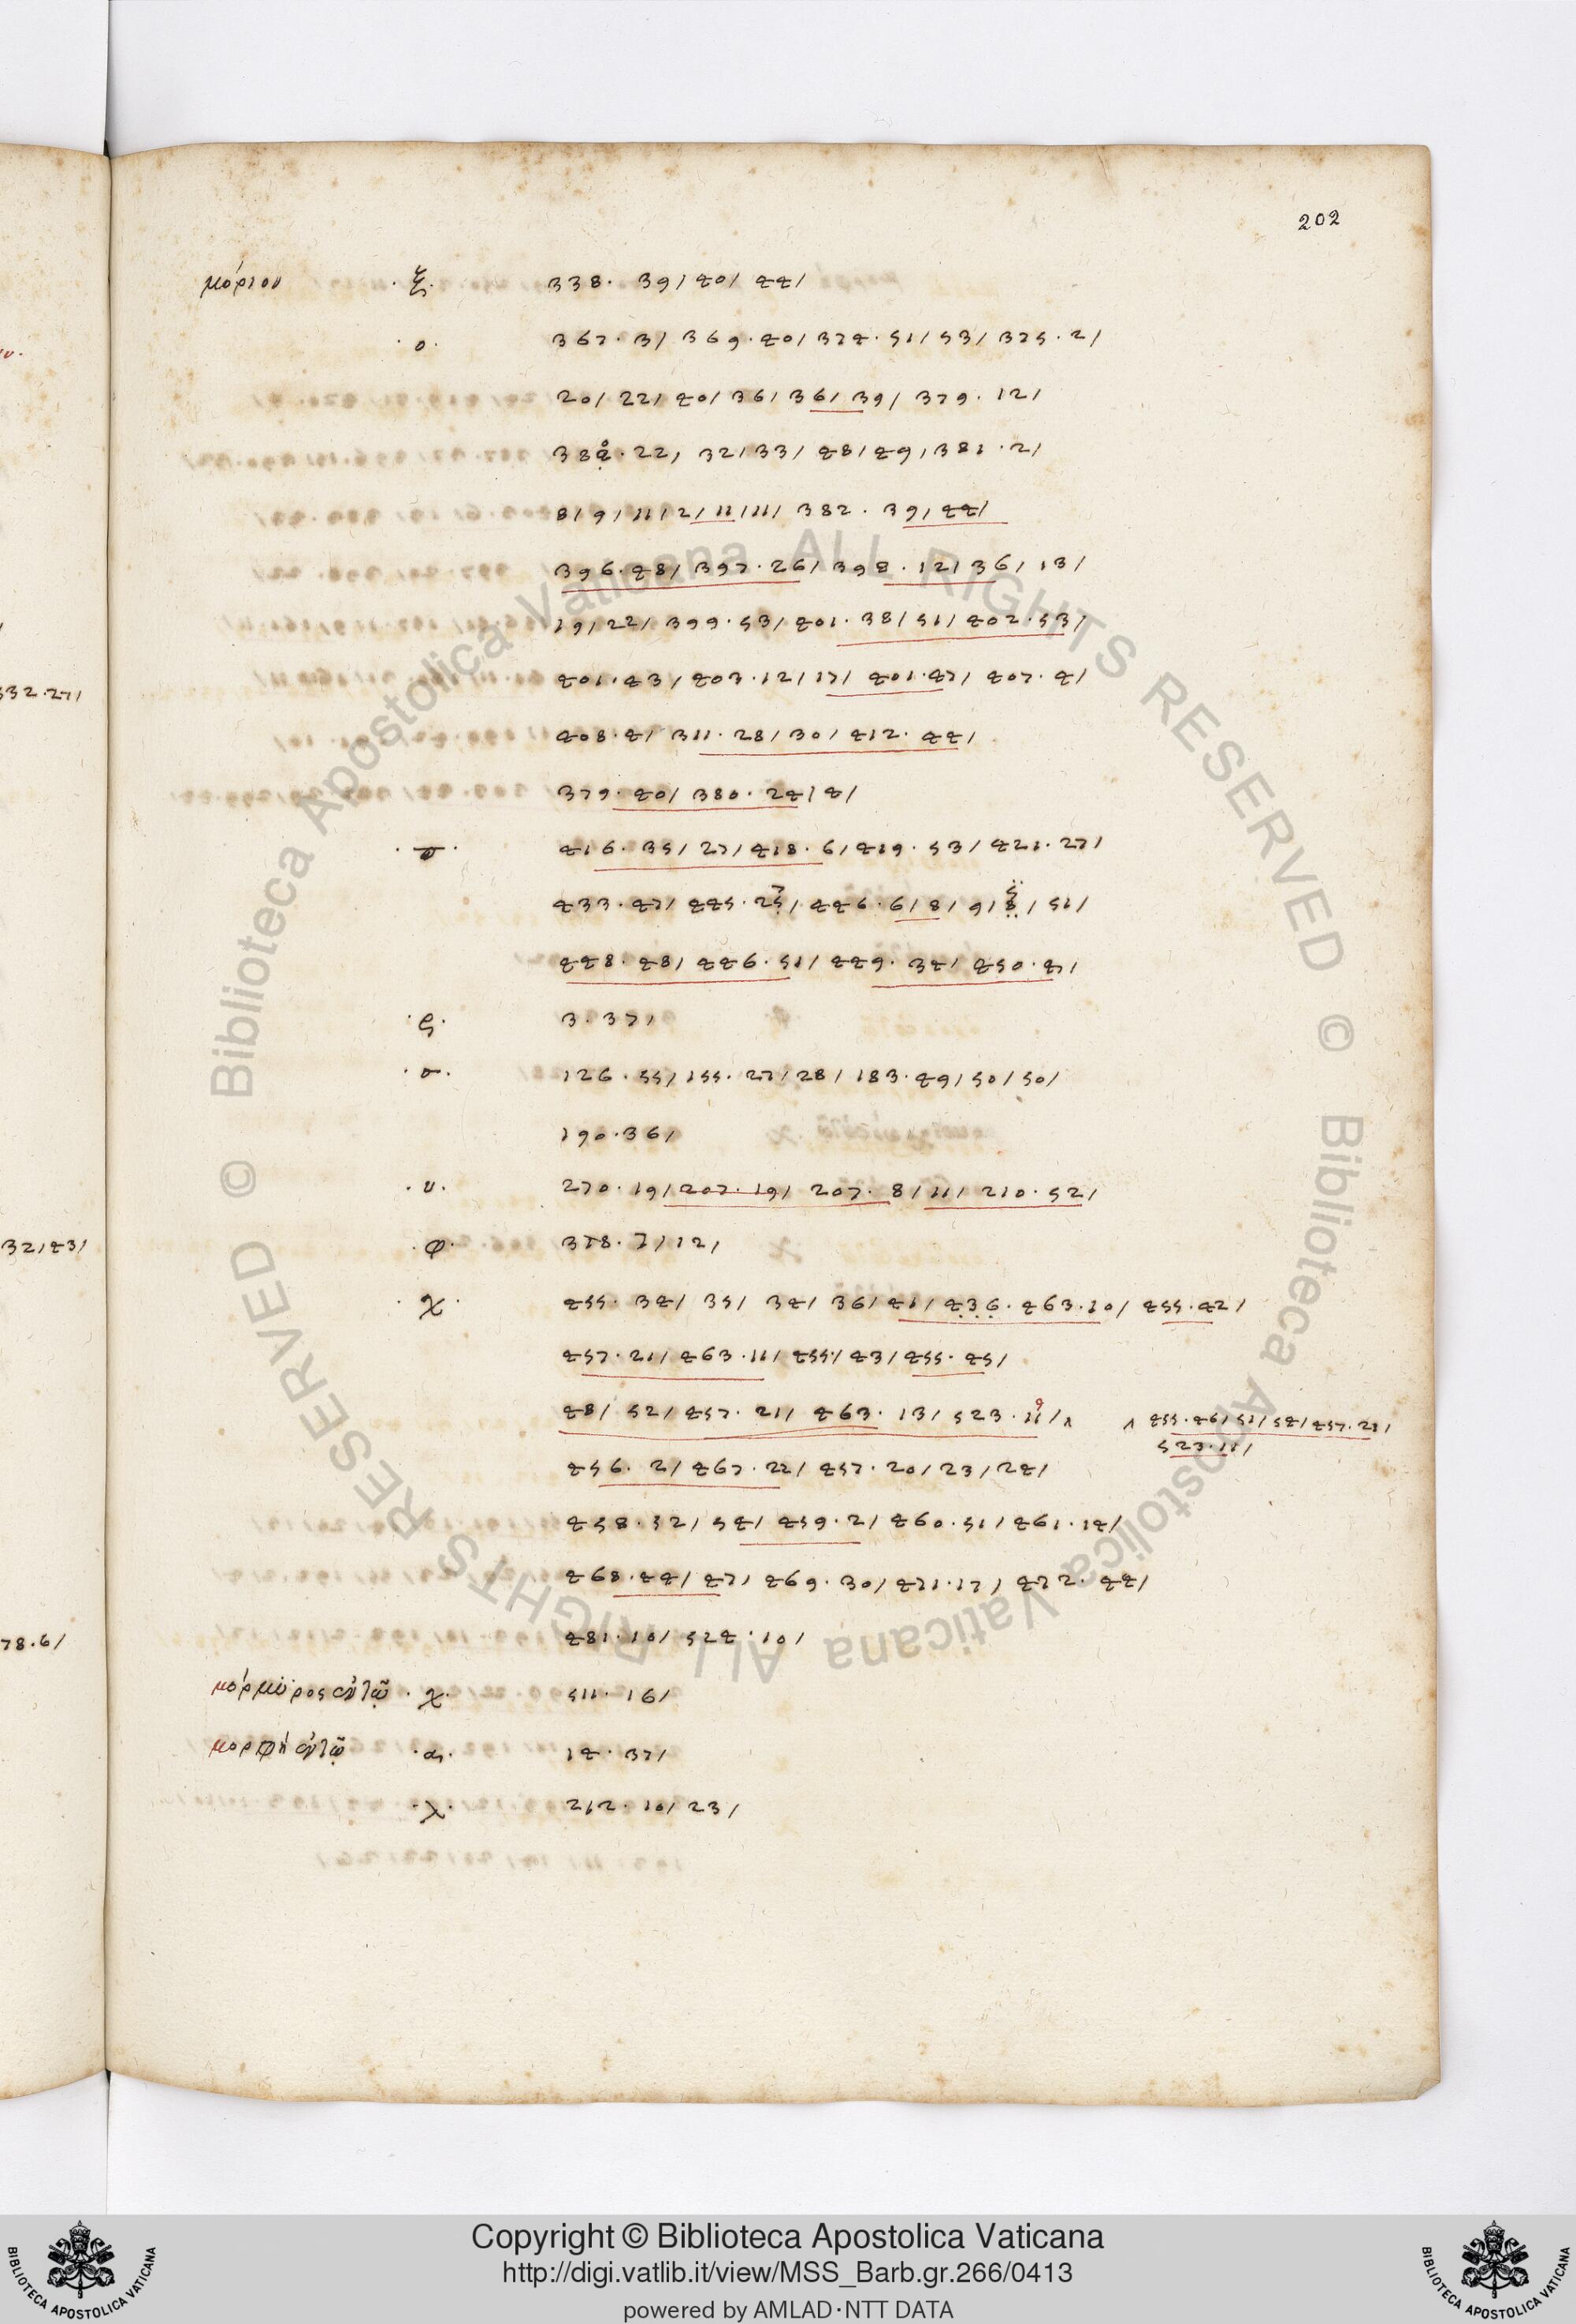 202
μόριον · ξ · 338 · 39 / 40 / 44 /
· ο · 367 · 3 / 369 · 40 / 374 · 51 / 53 / 375 · 2 /
20 / 22 / 40 / 36 / 36 / 39 / 379 · 12 /
22 / 32 / 33 / 48 / 49 / 381 · 2 /
8 / 9 / 11 / 2 / 11 / 11 / 382 · 39 / 44 /
396 · 48 / 397 · 26 / 398 · 12 / 36 / 13 /
19 / 22 / 399 · 53 / 401 · 38 / 51 / 402 · 53 /
401 · 43 / 403 · 12 / 17 / 401 · 47 / 407 · 4 /
408 · 4 / 311 · 28 / 30 / 412 · 44 /
379 · 40 / 380 · 24 / 4 /
416 · 35 / 27 / 418 · 6 / 419 · 53 / 421 · 27 /
433 · 47 / 445 · / 446 · 6 / 8 / 9 / / 51 /
448 · 48 / 446 · 51 / 449 · 34 / 450 · 4 /
· ς · 3 · 37 /
· σ · 126 · 55 / 155 · 27 / 28 / 183 · 49 / 50 / 50 /
190 · 36 /
· υ · 270 · 19 / 207 · 19 / 207 · 8 / 11 / 210 · 52 /
· φ · 378 · 7 / 12 /
· χ · 455 · 34 / 35 / 34 / 36 / 41 / 436 · 463 · 10 / 455 · 42 /
457 · 21 / 463 · 11 / 455 / 43 / 455 · 45 /
48 / 52 / 457 · 21 / 463 · 13 / 523 · 11 / ʌ ʌ 455 · 46 / 51 / 54 / 457 · 21 /
523 · 11 /
456 · 2 / 467 · 22 / 457 · 20 / 23 / 24 /
458 · 32 / 54 / 459 · 2 / 460 · 51 / 461 · 14 /
468 · 44 / 47 / 469 · 30 / 471 · 17 / 472 · 44 /
481 · 10 / 524 · 10 /
μόρμυρος ἐν τῷ · χ · 511 · 16 /
μορφὴ ἐν τῷ · α · 14 · 37 /
· χ · 212 · 10 / 23 /
332 · 27 /
32 / 43 /
78 · 6 /
© Biblioteca Apostolica Vaticana ALL RIGHTS RESERVED © Biblioteca Apostolica Vaticana ALL RIGHTS RESERVED
Copyright © Biblioteca Apostolica Vaticana
http://digi.vatlib.it/view/MSS_Barb.gr.266/0413
powered by AMLAD·NTT DATA
BIBLIOTECA APOSTOLICA VATICANA
BIBLIOTECA APOSTOLICA VATICANA